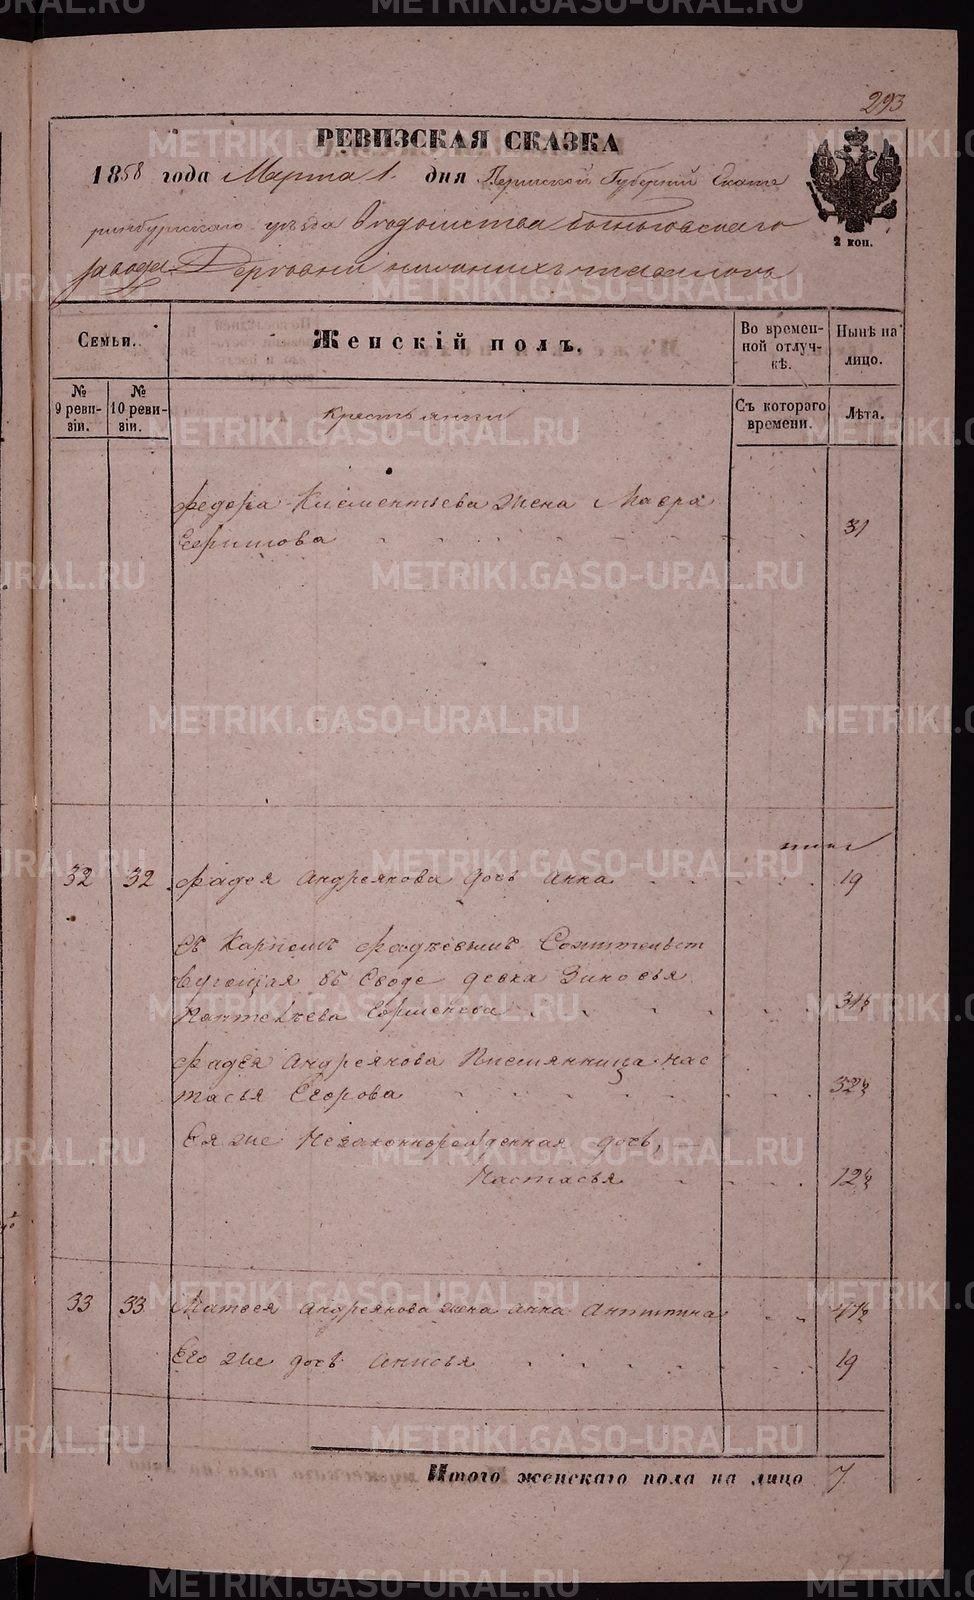 293
РЕВИЗСКАЯ СКАЗКА
1858 года Марта 1. дня Пермской Губернии Екате
ринбургскаго уезда
завода Деревни
2 коп.
Семьи.
Женскій полъ.
Во времен-
ной отлуч-
кѣ.
Нынѣ на
лицо.
№
9 реви-
зіи.
№
10 реви-
зіи.
Крестьянки
Съ котораго
времени.
Лѣта.
Федора Клементьева жена Мавра
Ефимова 31
32 32 Фадея Андреянова дочь Анна 19
Съ Карпомъ Фадѣевымъ Сожительст
вующая въ Своде девка Зиновья
Пантелѣева 31½
Фадея Андреянова Племянница Нас
тасья Егорова 32½
Ея же Незаконнорожденная дочь,
Настасья 12½
33 33 Матвея Андреянова жена Анна Антипина 41½
Его же дочь Анисья 19
Итого женскаго пола на лицо 7
METRIKI.GASO-URAL.RU